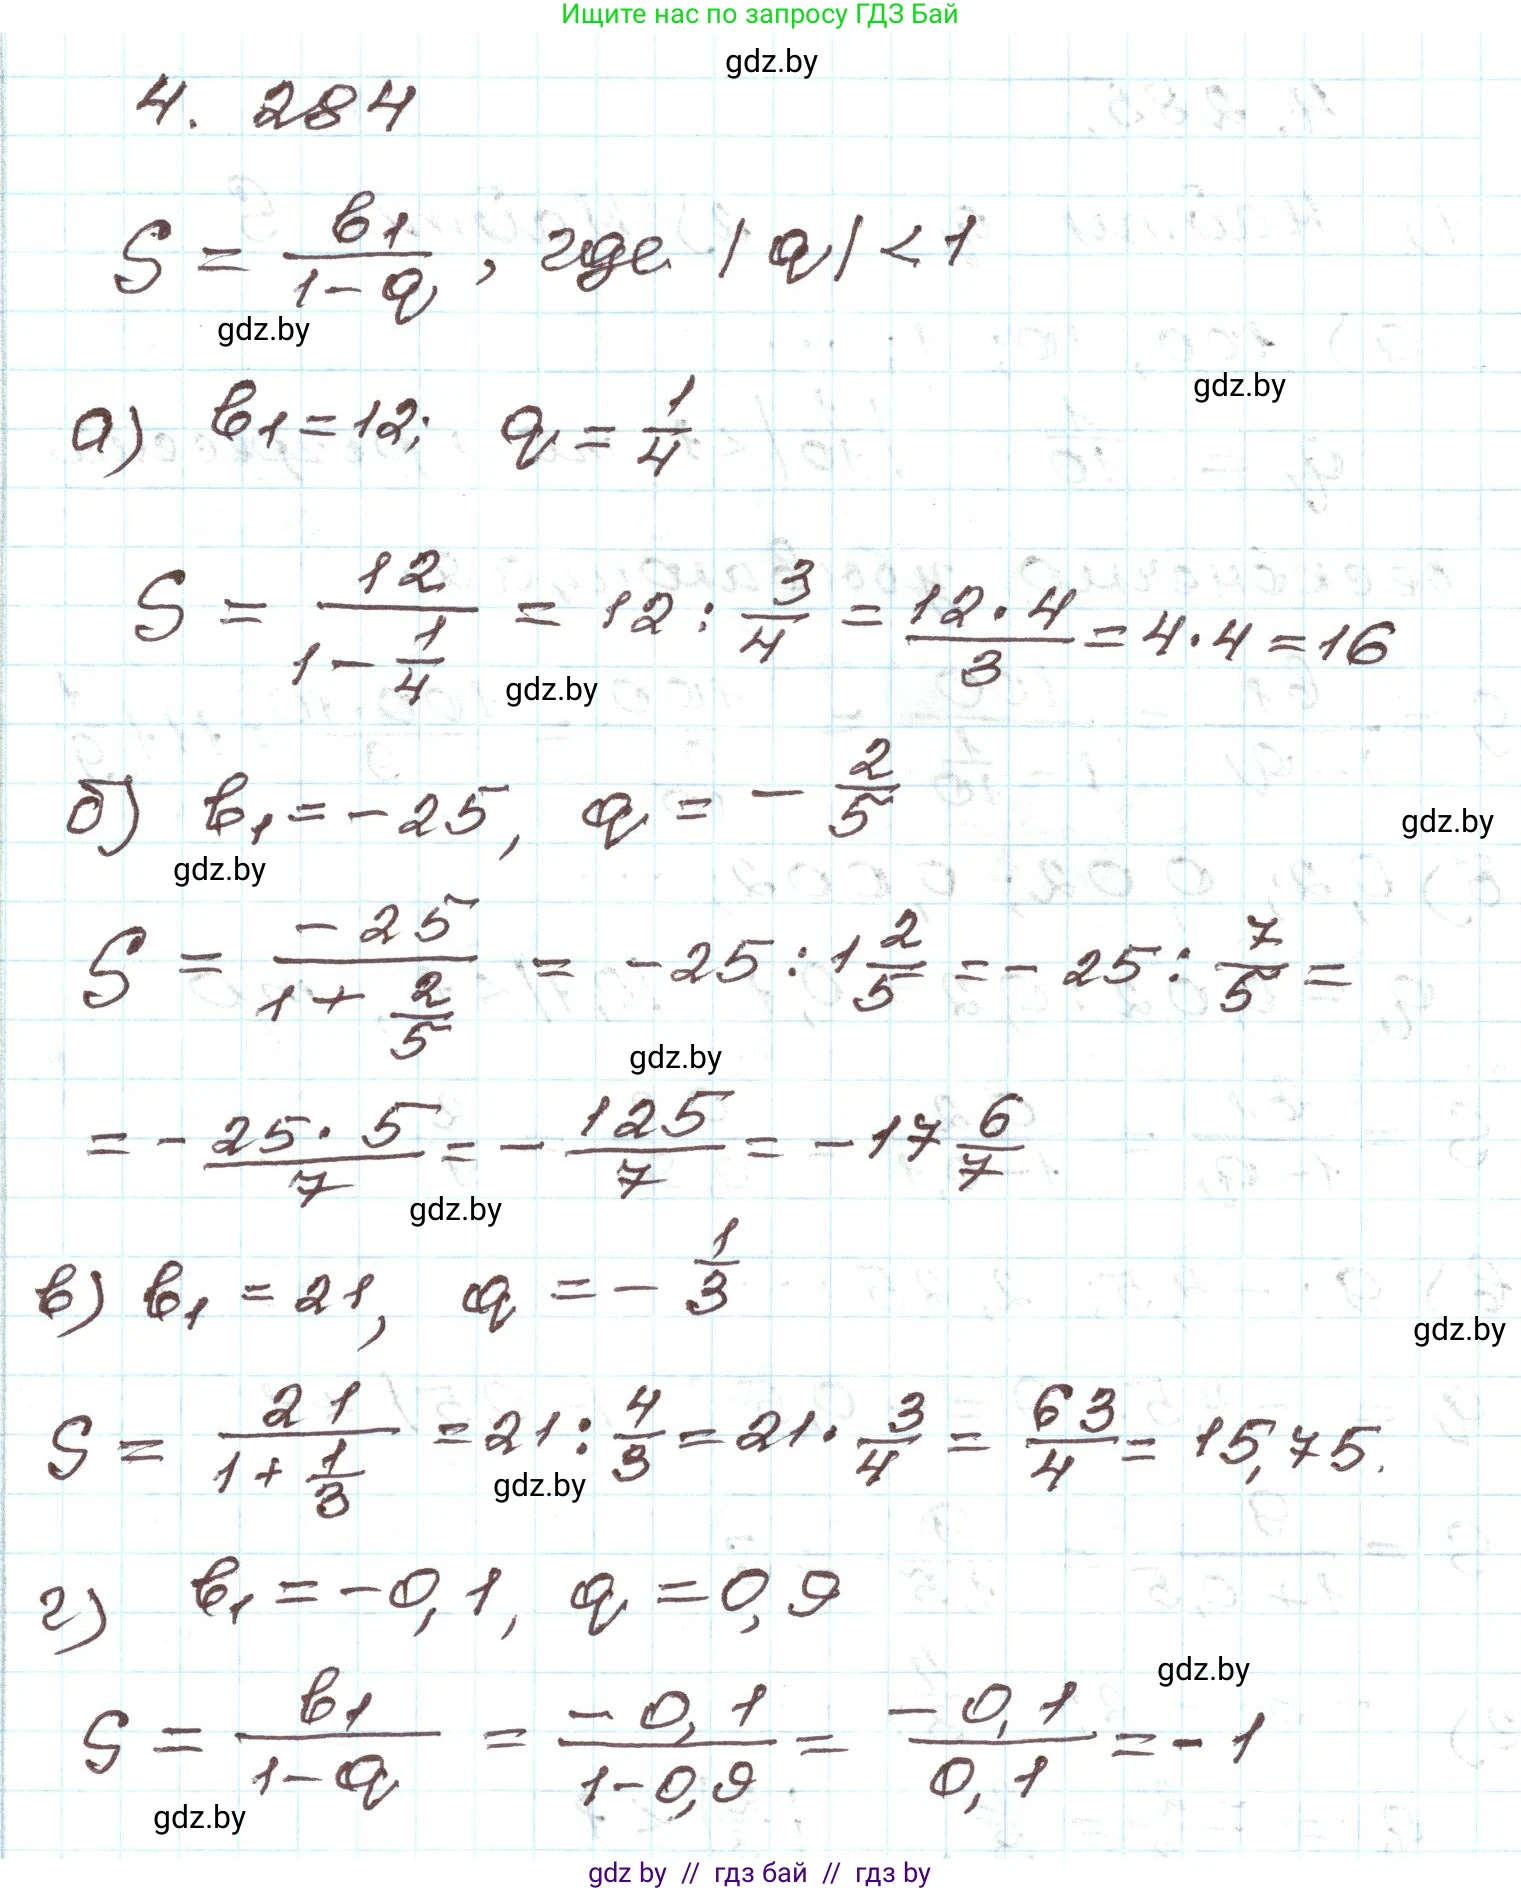 Ищите нас по запросу ГДЗ Бай
gdz.by
4. 284
S = b₁/(1-q), где |q| < 1
gdz.by
gdz.by
а) b₁ = 12; q = 1/4
S = 12/(1 - 1/4) = 12 : 3/4 = 12·4/3 = 4·4 = 16
gdz.by
б) b₁ = -25, q = - 2/5
gdz.by
gdz.by
S = -25/(1 + 2/5) = -25 : 1 2/5 = - 25 : 7/5 =
gdz.by
= - 25·5/7 = - 125/7 = - 17 6/7
gdz.by
в) b₁ = 21, q = - 1/3
gdz.by
S = 21/(1 + 1/3) = 21 : 4/3 = 21 · 3/4 = 63/4 = 15,75.
gdz.by
г) b₁ = -0,1, q = 0,9
gdz.by
S = b₁/(1-q) = -0,1/(1-0,9) = -0,1/0,1 = - 1
gdz.by
gdz by // гдз бай // гдз by